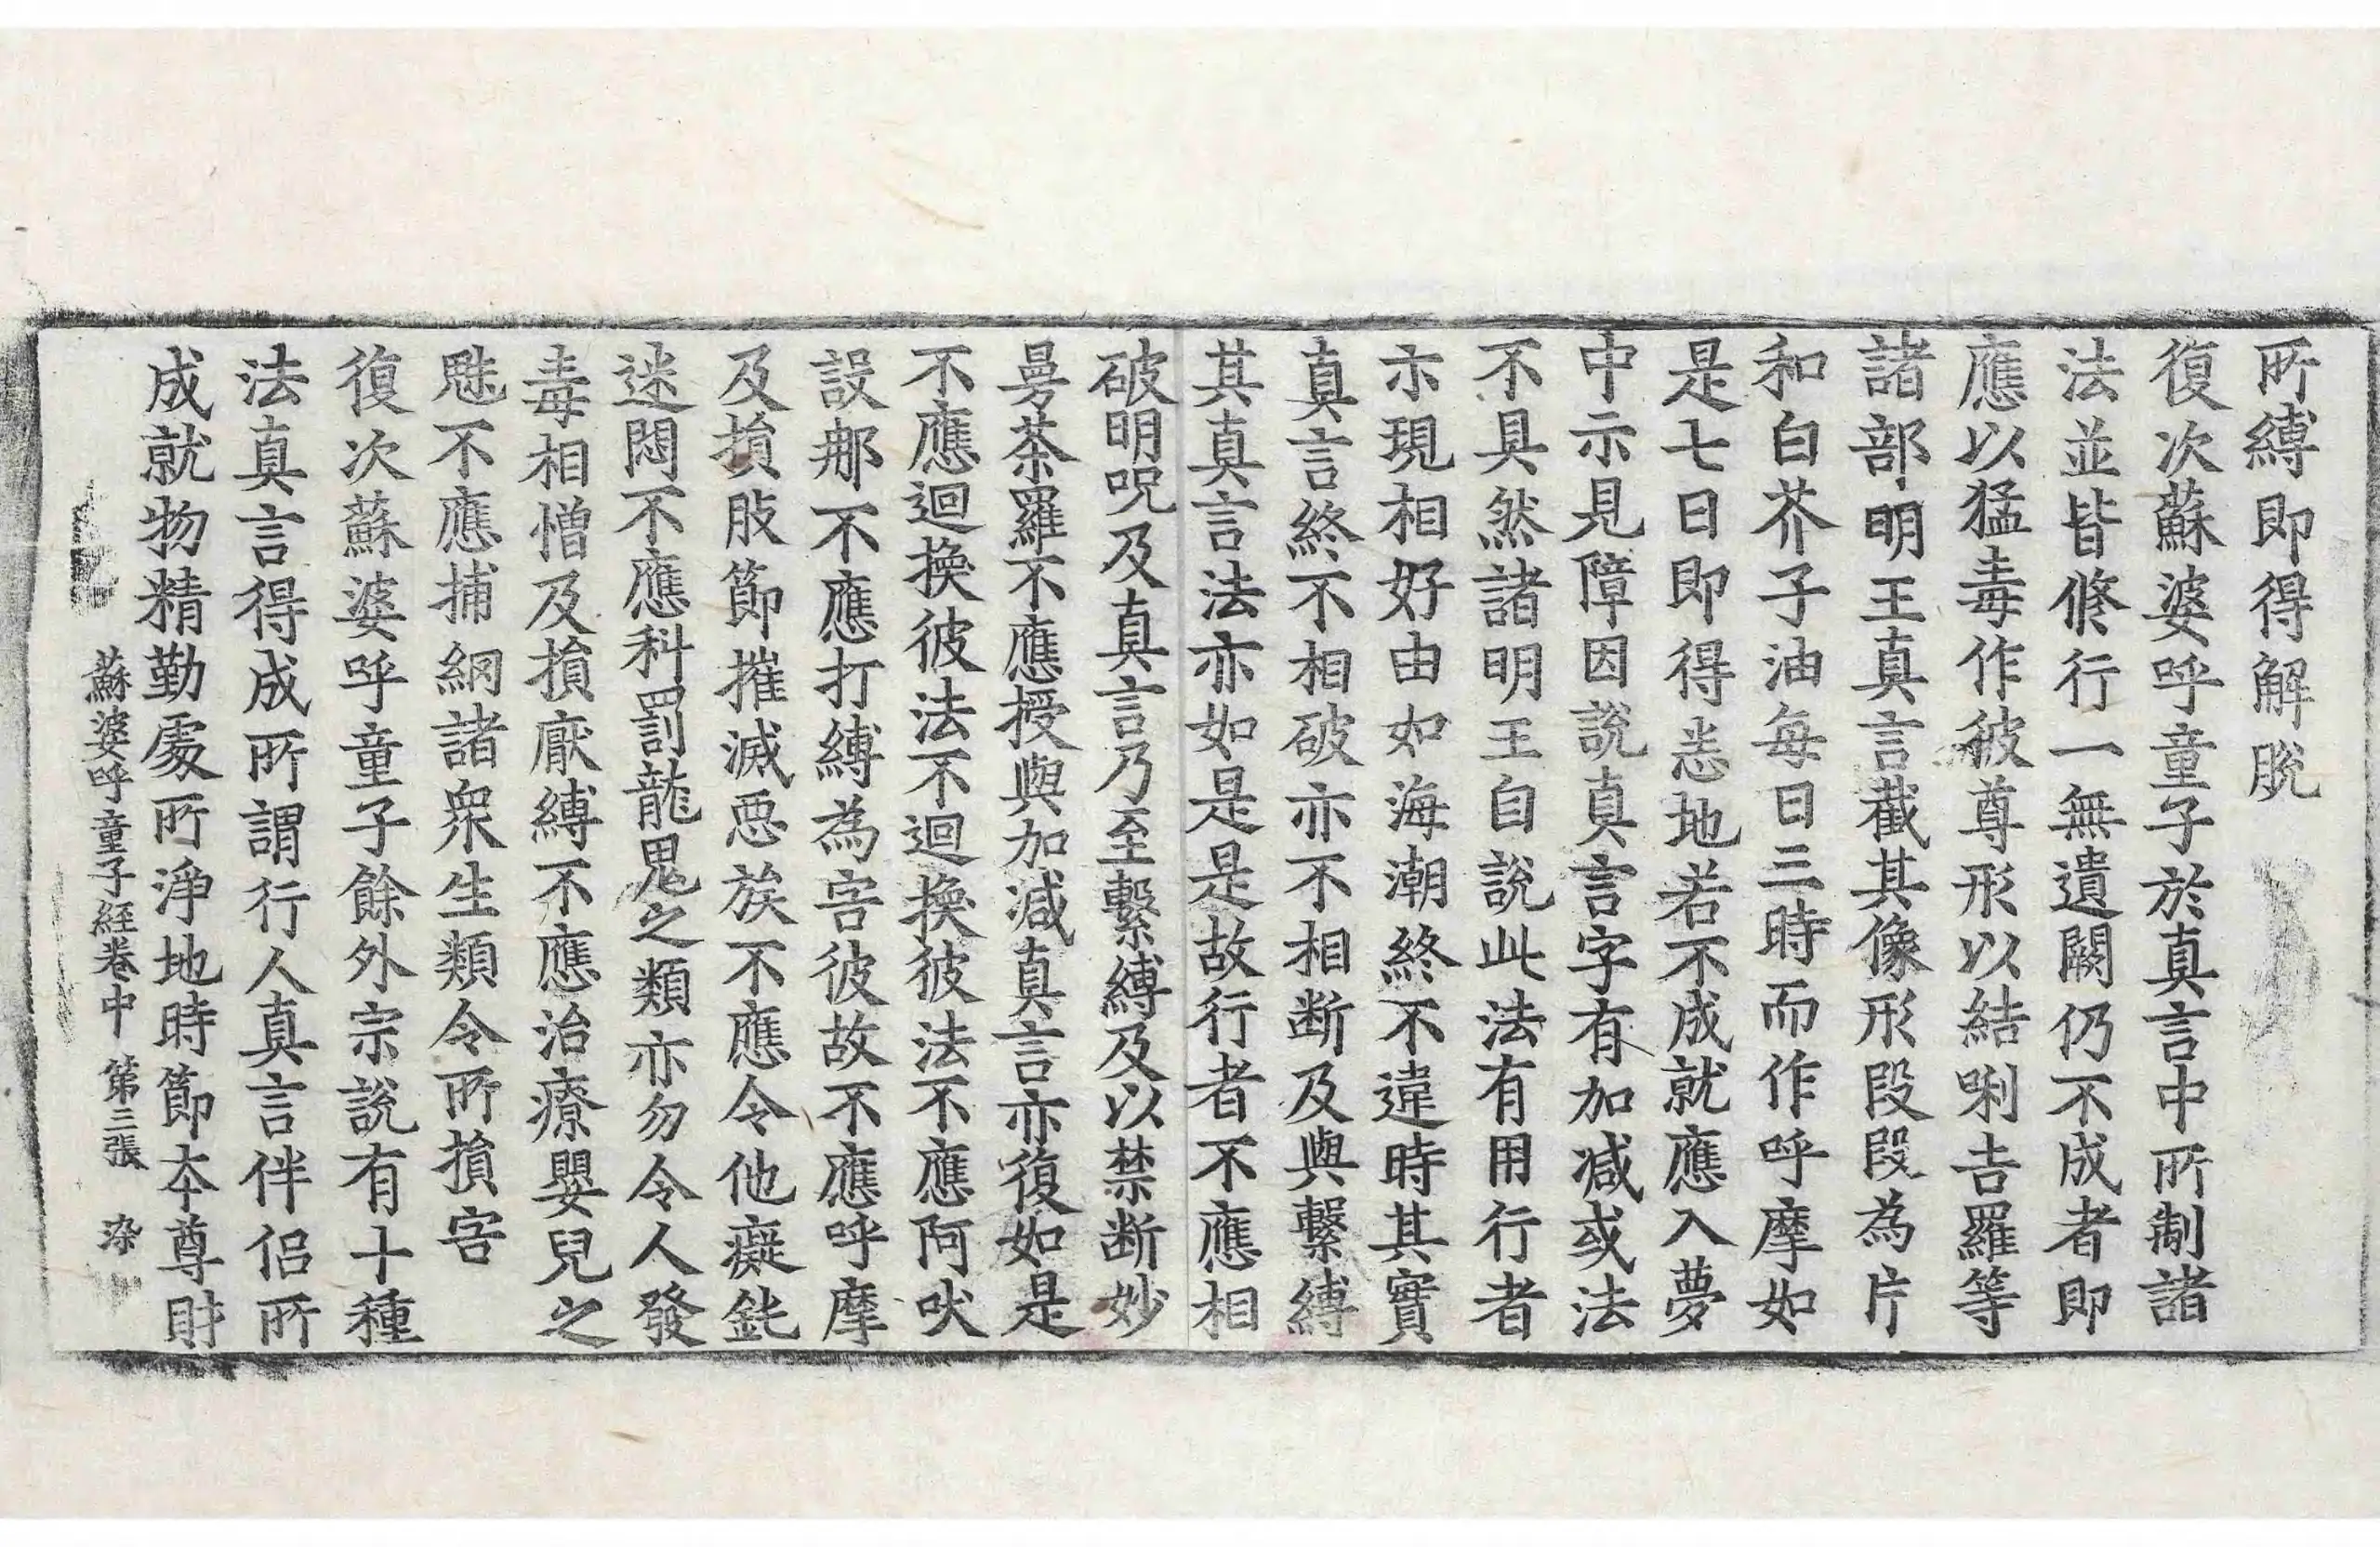 所縛即得解脫
復次蘇婆呼童子於真言中所制諸
法並皆修行一無遺闕仍不成者即
應以猛毒作彼尊形以結唎吉羅等
諸部明王真言截其像形段段為片
和白芥子油每日三時而作呼摩如
是七日即得悉地若不成就應入夢
中示見障因說真言字有加減或法
不具然諸明王自說此法有用行者
示現相好由如海潮終不違時其實
真言終不相破亦不相斷及與繫縛
其真言法亦如是是故行者不應相
破明呪及真言乃至繫縛及以禁断妙
曼茶羅不應授與加減真言亦復如是
不應迴換彼法不迴換彼法不應阿吠
設那不應打縛為害彼故不應呼摩
及損肢節摧滅惡族不應令他癡鈍
迷悶不應科罰龍鬼之類亦勿令人發
毒相憎及損厭縛不應治療嬰兒之
魅不應捕網諸眾生類令所損害
復次蘇婆呼童子餘外宗說有十種
法真言得成所謂行人真言伴侶所
成就物精勤處所淨地時節本尊財
蘇婆呼童子經卷中 第三張 染